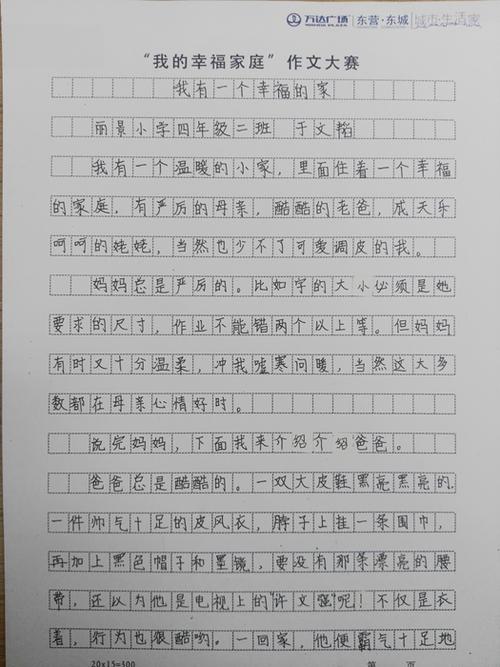 万达广场 东营·东城 城市生活家
“我的幸福家庭”作文大赛
我有一个幸福的家
丽景小学四年级二班 于文韬
我有一个温暖的小家，里面住着一个幸福
的家庭，有严厉的母亲，酷酷的老爸，成天乐
呵呵的姥姥，当然也少不了可爱调皮的我。
妈妈总是严厉的。比如字的大小必须是她
要求的尺寸，作业不能错两个以上等。但妈妈
有时又十分温柔，冲我嘘寒问暖，当然这大多
数都在母亲心情好时。
说完妈妈，下面我来介绍介绍爸爸。
爸爸总是酷酷的。一双大皮鞋黑亮黑亮的.
一件帅气十足的皮风衣，脖子上挂一条围巾，
再加上黑色帽子和墨镜，要没有那条漂亮的腰
带，还以为他是电视上的“许文强”呢！不仅是衣
着，行为也很酷哟。一回家，他便霸气十足地
20×15=300 第 页